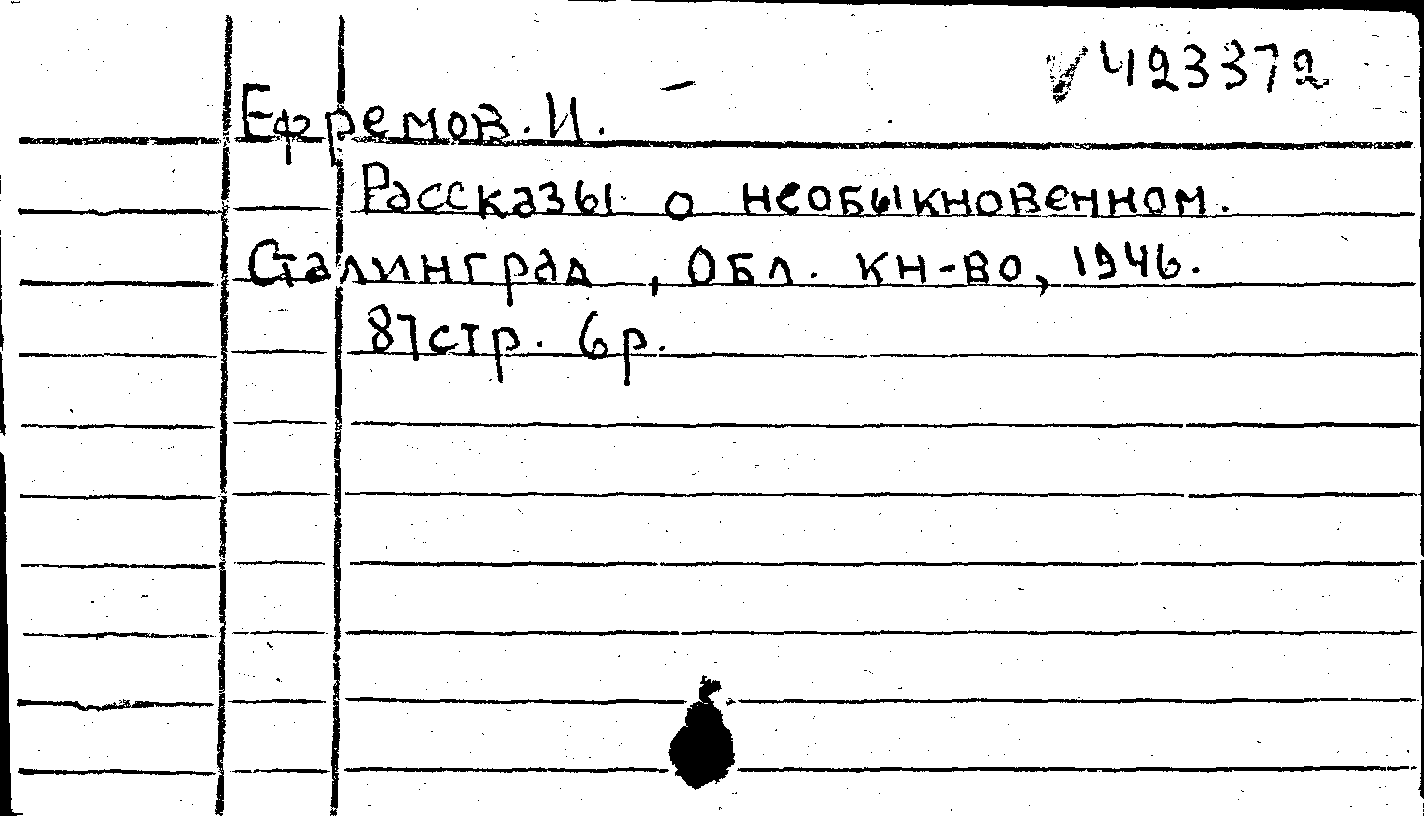 V 423372
Ефремов. И.
Рассказы о необыкновенном.
Сталинград, Обл. кн-во, 1946.
87стр. 6р.